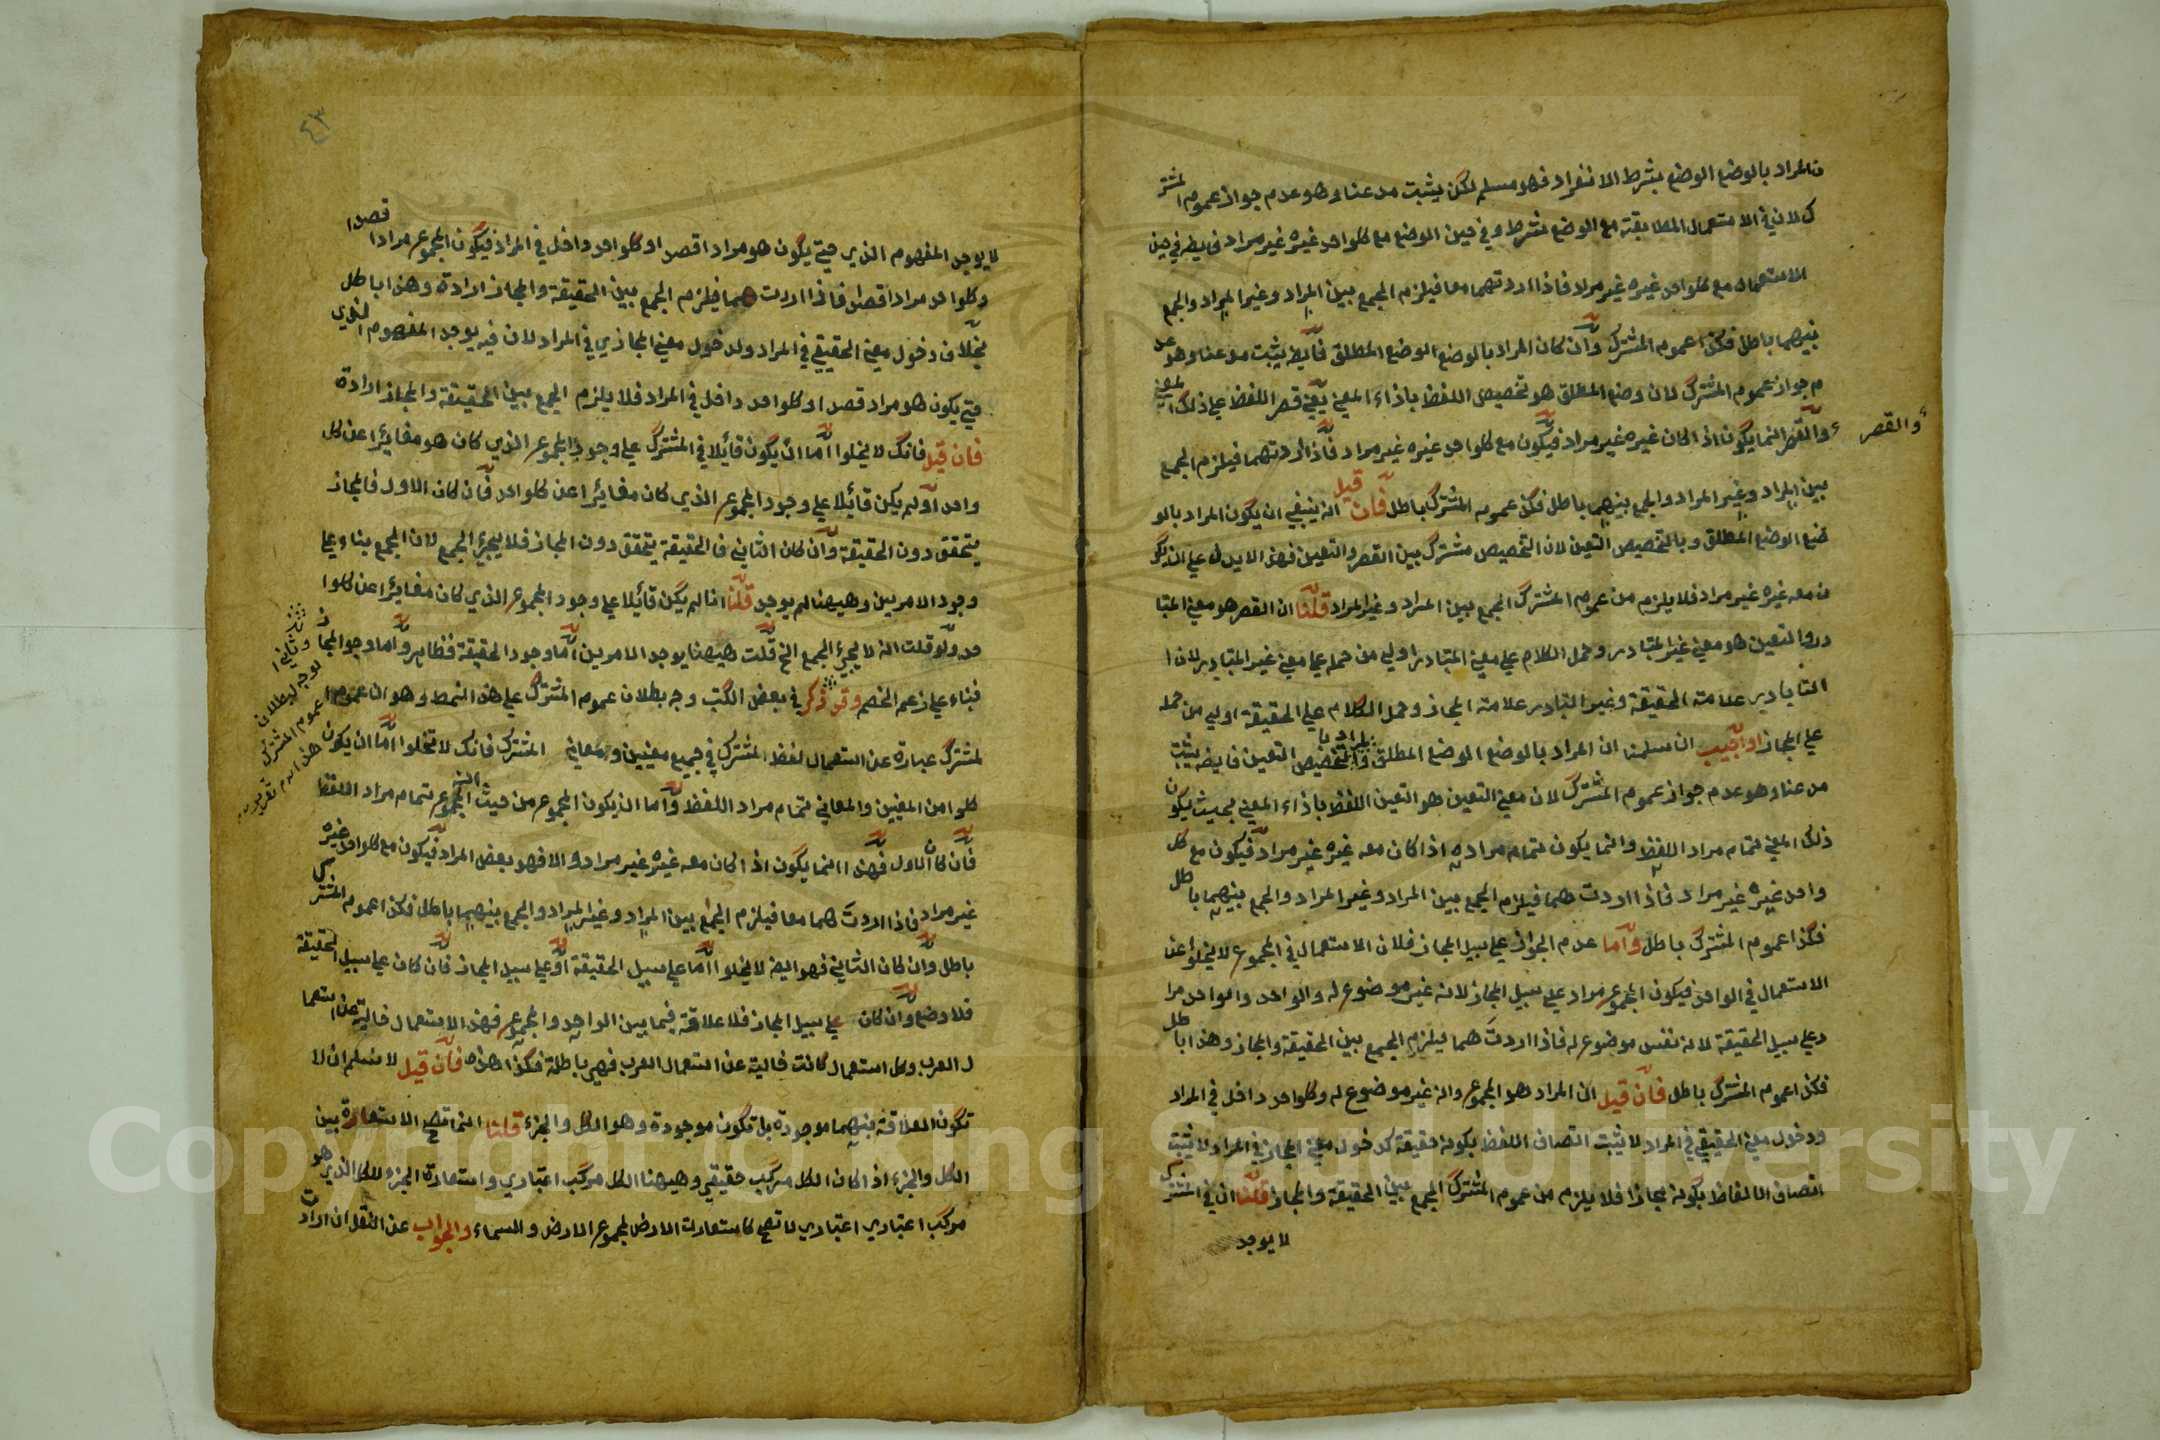 ن المراد بالوضع الوضع بشرط الانفراد فهو مسلم لكن يثبت مدعناه وهو عدم جواز عموم المشتر
ك لان في الاستعمال المطابقة مع الوضع شرط وفي حين الوضع مع كلواحد غيره غير مراد فايضه في حين
الاستعمال مع كلواحد غيره غير مراد فاذا اردتهما معا فيلزم الجمع بين المراد وغير المراد والجمع
بينهما باطل فكذا عموم المشترك وان كان المراد بالوضع الوضع المطلق فايضه يثبت مدعنا وهو عد
م جواز عموم المشترك لان وضع المطلق هو تخصيص اللفظ باذاء المعنى يعني قصر اللفظ علي ذلك المعني
والقصر
والقصر انما يكون اذا كان غيره غير مراد فيكون مع كلواحد غيره غير مراد فاذا اردتهما فيلزم الجمع
بين المراد وغير المراد والجمع بينهما باطل فكذا عموم المشترك باطل فان قيل انه ينبغي ان يكون المراد بالو
ضع الوضع المطلق وبالتخصيص التعين لان التخصيص مشترك بين القصر والتعين فهذا لايدل علي ان يكو
ن معه غيره غير مراد فلا يلزم من عموم المشترك الجمع بين المراد وغير المراد قلنا ان القصر هو معني المتبا
در والتعين هو معني غير المتبادر وحمل الكلام علي معني المتبادر اولي من حمله علي معني غير المتبادر لان ا
لتبادر علامة الحقيقة وغير التبادر علامة المجاز وحمل الكلام علي الحقيقة اولي من حمله
علي المجاز او اجيب ان سلمنا ان المراد بالوضع الوضع المطلق والمراد بالتخصيص التعين فايضه يثبت
مدعنا وهو عدم جواز عموم المشترك لان معني التعين هو التعين اللفظ باذاء المعني بحيث يكون
ذلك المعني تمام مراد اللفظ وانما يكون تمام مراده اذا كان معه غيره غير مراد فيكون مع كل
واحد غيره غير مراد فاذا اردت هما فيلزم الجمع بين المراد وغير المراد والجمع بينهما باطل
فكذا عموم المشترك باطل واما عدم الجواز علي سبيل المجاز فلان الاستعمال في المجموع لا يخلوا عن
الاستعمال في الواحد فيكون المجموع مراد علي سبيل المجاز لانه غير موضوع له والواحد والواحد مرا
د علي سبيل الحقيقة لانه نفس موضوع له فاذا اردت هما فيلزم الجمع بين الحقيقة والمجاز وهذا باطل
فكذا عموم المشترك باطل فان قيل ان المراد هو المجموع وانه غير موضوع له وكلواحد داخل في المراد
ودخول معني الحقيقي في المراد لا يثبت اتصاف اللفظ بكونه حقيقة كدخول معني المجاز في المراد لا يثبت
اتصاف الالفاظ بكونه مجازا فلا يلزم من عموم المشترك الجمع بين الحقيقة والمجاز قلنا ان في المشترك
لا يوجد
٤٣
لا يوجد المفهوم الذي حتي يكون هو مراد اقصد او كلواحد داخل في المراد فيكون المجموع مرادا قصدا
وكلواحد مرادا قصدا فاذا اردت هما فيلزم الجمع بين الحقيقة والمجاز ارادة وهذا باطل
بخلاف دخول معني الحقيقي في المراد ولدخول معني المجازي في المراد لان فيه يوجد المفهوم الذي
حتي يكون هو مراد قصدا وكلواحد داخل في المراد فلا يلزم الجمع بين الحقيقة والمجاز ارادة
فان قيل فانك لا يخلوا اما ان يكون قائلا في المشترك علي وجود المجموع الذي كان هو مغائرا عن كل
واحد او لم يكن قائلا علي وجود المجموع الذي كان مغائرا عن كلواحد فان كان الاول فالمجاز
يتحقق دون الحقيقة وان كان الثاني فالحقيقة يتحقق دون المجاز فلا يجيئ الجمع لان الجمع بناء علي
وجود الامرين وهيهنا لم يوجد قلنا انا لم يكن قائلا علي وجود المجموع الذي كان مغايرا عن كلوا
حد ولو قلت انه لا يجيئ الجمع الخ قلت هيهنا يوجد الامرين اما وجود الحقيقة فظاهر واما وجود المجاز
فبناء علي زعم الخصم وقد ذكر في بعض الكتب وجه بطلان عموم المشترك علي هذا النمط وهو ان عموم ا
وثانيا
لوجه لبطلان
عموم المشترك
لمشترك عبارة عن استعمال لفظ المشترك في جميع معنيين ومعاني المشترك فانك لا تخلوا اما ان يكون
كلوا من المعنيين والمعاني تمام مراد اللفظ واما ان يكون المجموع من حيث المجموع تمام مراد اللفظ
فان كان الاول فهذا انما يكون اذا كان معه غيره غير مراد والا فهو بعض المراد فيكون مع كلواحد غيره
غير مراد فاذا اردت هما معا فيلزم الجمع بين المراد وغير المراد والجمع بينهما باطل فكذا عموم المشترك
باطل وان كان الثاني فهو ايضه لا يخلوا اما علي سبيل الحقيقة او علي سبيل المجاز فان كان علي سبيل الحقيقة
فلا وضع وان كان علي سبيل المجاز فلا علاقة فيما بين الواحد والمجموع فهذا الاستعمال خالية عن استعما
ل العرب وكل استعمال كانت خالية عن استعمال العرب فهي باطلة فكذا هذه فان قيل لا نسلم ان لا
تكون العلاقة بينهما موجودة بل تكون موجودة وهو الكل والجزء قلنا انما تصح الاستعارة بين
الكل والجزء اذا كان الكل مركب حقيقي وهيهنا الكل مركب اعتباري واستعارة الجزء للكل الذي هو
مركب اعتباري اعتباري لا تصح كاستعارت الارض لمجموع الارض والسماء والجواب عن النقل ان ارادت
Copyright © King Saud University